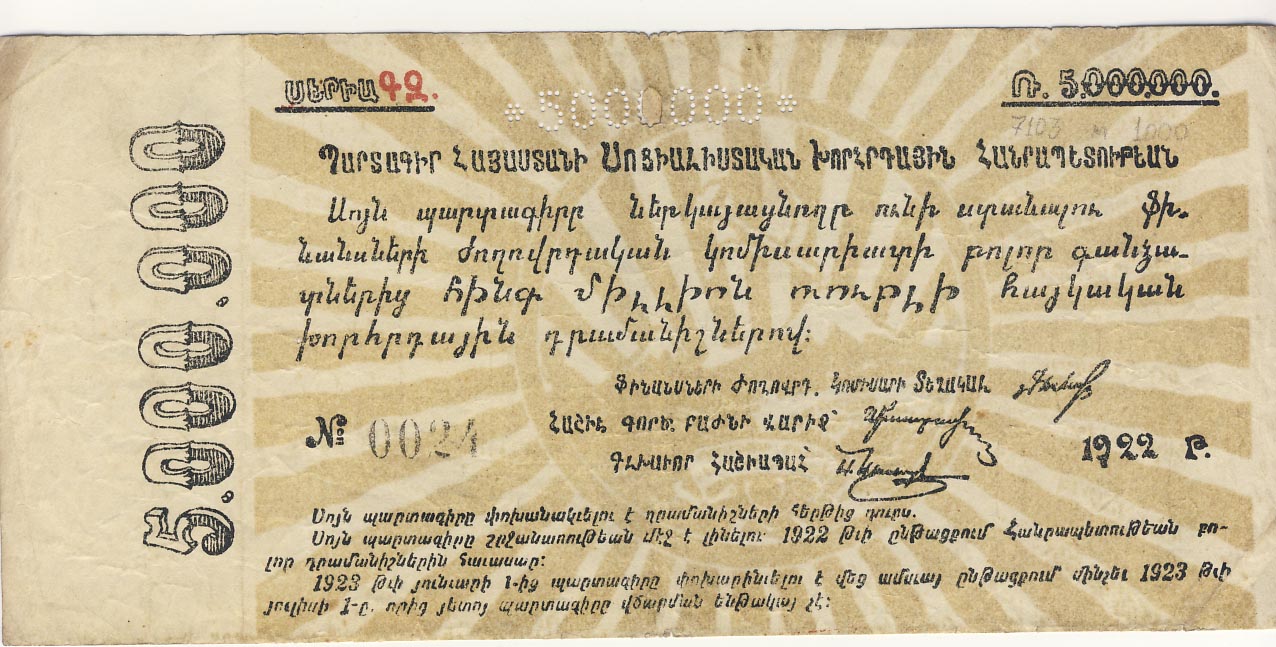 ՍԵՐԻԱ ԳՁ.
*5000000*
Ռ. 5.000.000.
7103 1000
ՊԱՐՏԱԳԻՐ ՀԱՅԱՍՏԱՆԻ ՍՈՑԻԱԼԻՍՏԱԿԱՆ ԽՈՐՀՐԴԱՅԻՆ ՀԱՆՐԱՊԵՏՈՒԹԵԱՆ
Սոյն պարտագիրը ներկայացնողը ունի ստանալու Ֆի-
նանսների Ժողովրդական կոմիսարիատի բոլոր գանձա-
րաններից հինգ միլլիոն ռուբլի հայկական
խորհրդային դրամանիշներով:
ՖԻՆԱՆՍՆԵՐԻ ԺՈՂՈՎՐԴ. ԿՈՄԻՍԱՐԻ ՏԵՂԱԿԱԼ
ՀԱՇԻՒ ԳՈՐԾ. ԲԱԺՆԻ ՎԱՐԻՉ՝
ԳԼԽԱՒՈՐ ՀԱՇԻԱՊԱՀ՝
№ 0024
1922 Թ.
Սոյն պարտագիրը փոխանակւելու է դրամանիշների հերթից դուրս.
Սոյն պարտագիրը շրջանառութեան մէջ է լինելու 1922 թւի ընթացքում Հանրապետութեան բո-
լոր դրամանիշներին հաւասար:
1923 թւի յունւարի 1-ից պարտագիրը փոխարինւելու է վեց ամսւայ ընթացքում մինչեւ 1923 թւի
յուլիսի 1-ը. որից յետոյ պարտագիրը վճարման ենթակայ չէ:
5.000.000